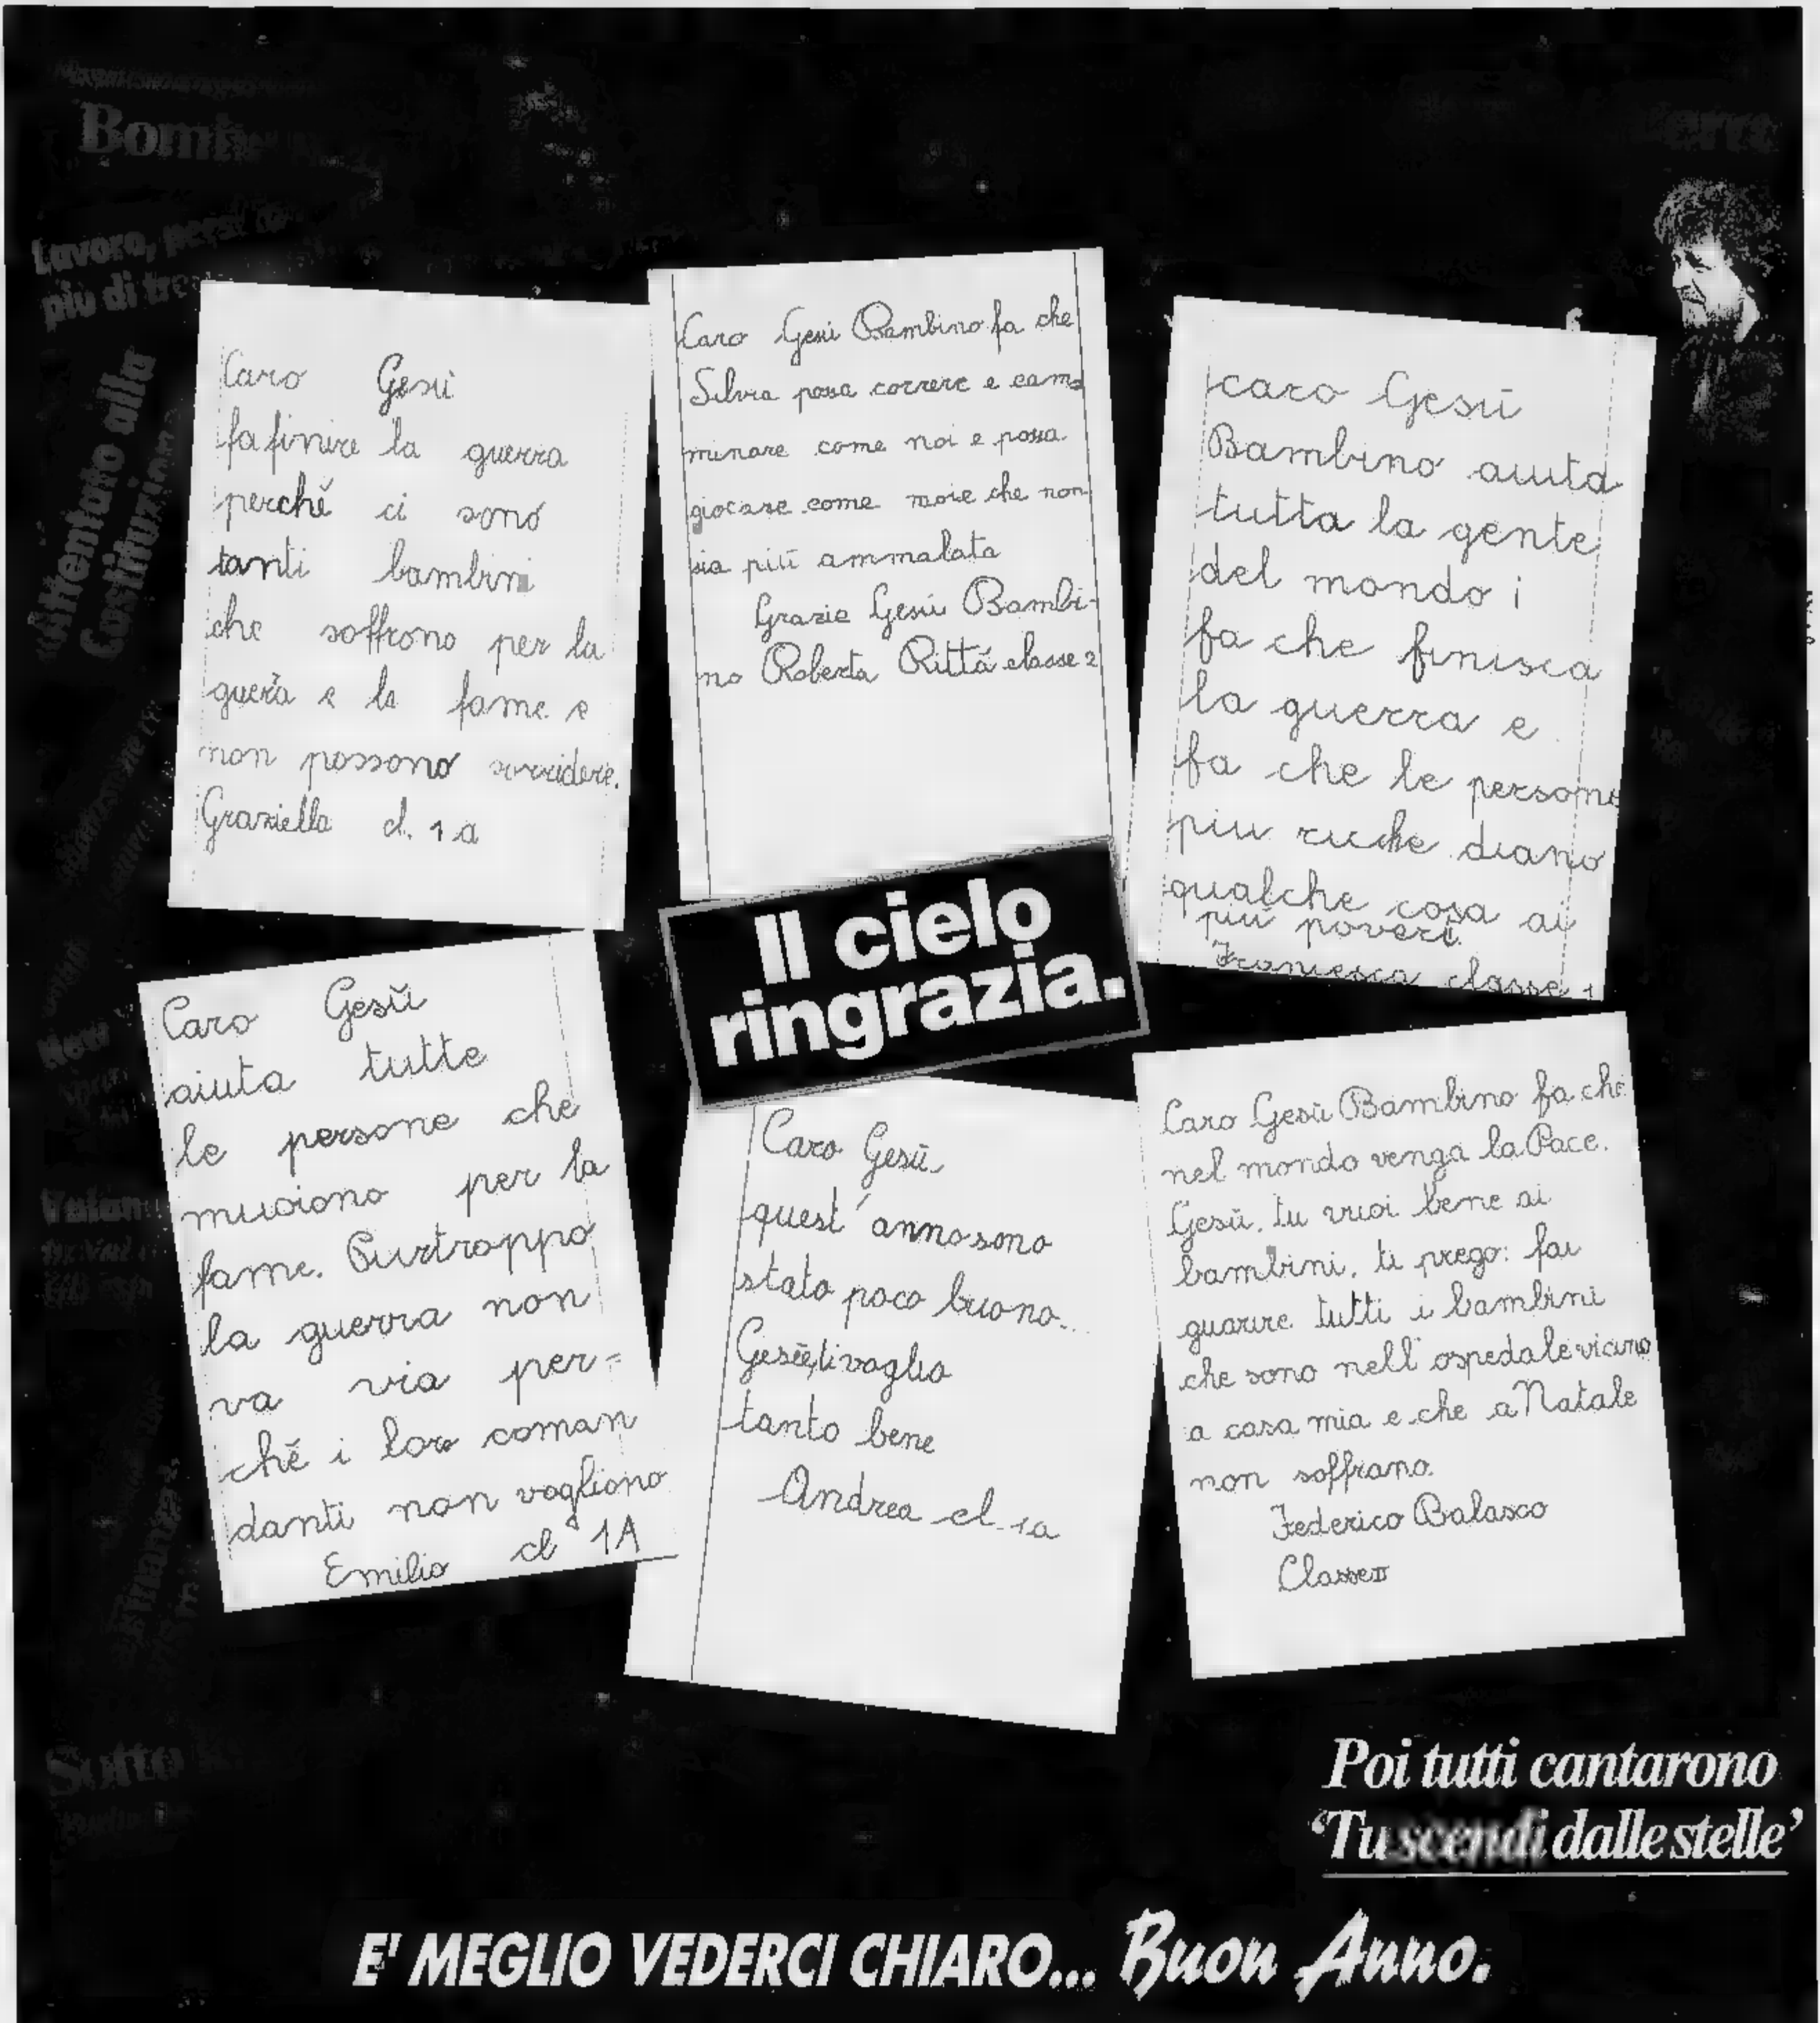 Bombe
Lavoro, persi
più di tre
Attentato alla
Costituzione
Caro Gesù
fa finire la guerra
perché ci sono
tanti bambini
che soffrono per la
guerra e la fame e
non possono sorridere.
Graziella cl. 1 a
Caro Gesù Bambino fa che
Silvia possa correre e cam
minare come noi e possa
giocare come noi e che non
sia più ammalata
Grazie Gesù Bambi-
no Roberta Rittà classe 2
caro Gesù
Bambino aiuta
tutta la gente
del mondo i
fa che finisca
la guerra e
fa che le persone
piu ricche diano
qualche cosa ai
più poveri.
Francesca classe 1
Il cielo
ringrazia.
Caro Gesù
aiuta tutte
le persone che
muoiono per la
fame. Purtroppo
la guerra non
va via per=
ché i loro coman
danti non vogliono
Emilio cl 1A
Caro Gesù
quest'anno sono
stato poco buono..
Gesù, ti voglio
tanto bene
Andrea cl. 1a
Caro Gesù Bambino fa che
nel mondo venga la Pace.
Gesù, tu vuoi bene ai
bambini, ti prego: fai
guarire tutti i bambini
che sono nell'ospedale vicino
a casa mia e che a Natale
non soffrano.
Federico Balasco
Classe II
Sotto
Poi tutti cantarono
'Tu scendi dalle stelle'
E' MEGLIO VEDERCI CHIARO... Buon Anno.